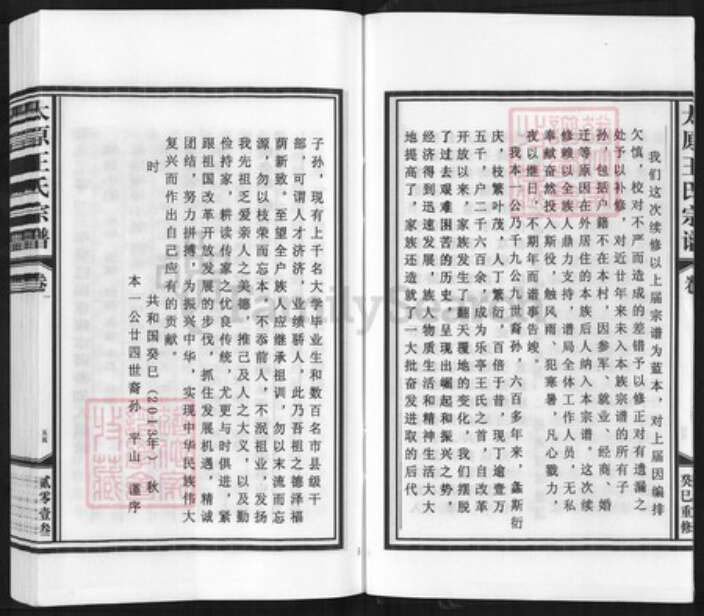 太原王氏宗谱
癸巳重修
我们这次续修以上届宗谱为蓝本，对上届因编排
欠慎，校对不严而造成的差错予以修正对有遗漏之
处予以补修，对近廿年来未入本族宗谱的所有子
孙，包括户籍不在本村，因参军、就业、经商、婚
迁等原因在外居住的本族后人纳入本宗谱，这次续
修赖以全族人鼎力支持，谱局全体工作人员，无私
奉献奋然投入斯役，触风雨、犯寒暑，凡心戮力，
夜以继日，不期年而谱事告竣。
我本一公乃千九公九世裔孙，六百多年来，螽斯衍
庆，枝繁叶茂，人丁繁衍，百倍于昔，现丁逾壹万
五千，户二千六百余，成为乐亭王氏之首，自改革
开放以来，家族发生了翻天覆地的变化，我们摆脱
了过去艰难困苦的历史，呈现出崛起和振兴之势，
经济得到迅速发展，族人物质生活和精神生活大大
地提高了，家族还造就了一大批奋发进取的后代
子孙，现有上千名大学毕业生和数百名市县级干
部，可谓人才济济，业绩骄人，此乃吾祖之德泽福
荫新致。至望全户族人应继承祖训，勿以末流而忘
源，勿以枝荣而忘本，不忝前人，不泯祖业，发扬
我先祖乏爱亲人之美德，推己及人之大义，以及勤
俭持家，耕读传家之优良传统，尤更与时俱进，紧
跟祖国改革开放发展的步伐，抓住发展机遇，精诚
团结，努力拼搏，为振兴中华，实现中华民族伟大
复兴而作出自己应有的贡献。
时
共和国癸巳（2013年）秋
本一公廿四世裔孙 平山 谨序
太原王氏宗谱
卷一
贰零壹叁
FamilySearch